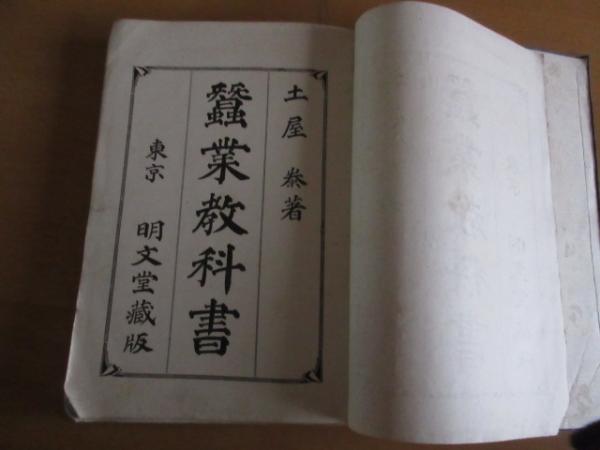 土屋泰著
蠶業教科書
東京 明文堂藏版